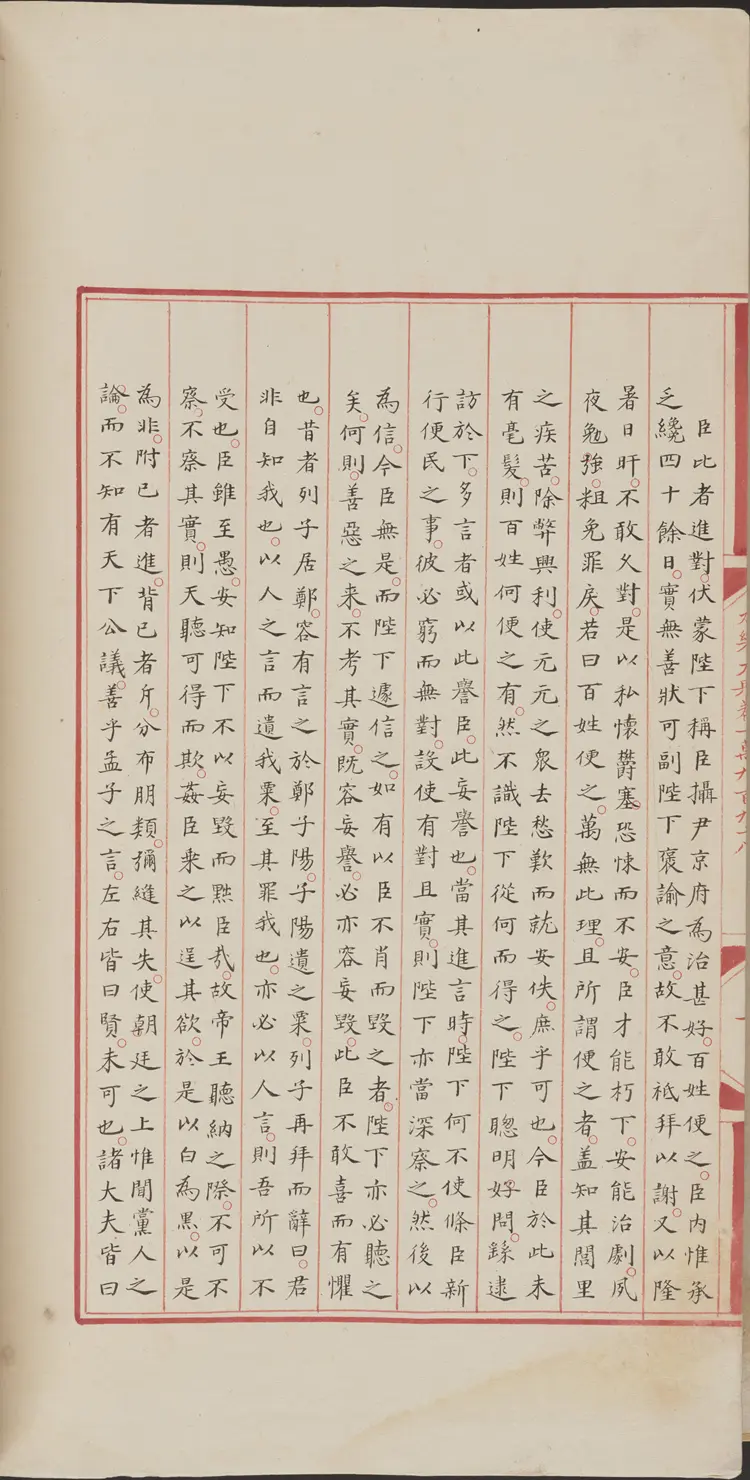 臣此者進對。伏蒙陛下稱臣攝尹京府為治甚好。百姓便之。臣内惟承
乏纔四十餘日。實無善狀可副陛下褒諭之意。故不敢祗拜以謝。又以隆
暑日旰。不敢久對。是以私懷欝塞。恐悚而不安。臣才能朽下。安能治劇。夙
夜勉強。粗免罪戾。若曰百姓便之。萬無此理。且所謂便之者。盖知其閭里
之疾苦。除弊興利。使元元之衆去愁歎而就安佚。庶乎可也。今臣於此未
有毫髮。則百姓何便之有。然不識陛下從何而得之。陛下聰明好問。繇逮
訪於下。多言者或以此譽臣。此妄譽也。當其進言時。陛下何不使條臣新
行便民之事。彼必窮而無對。設使有對且實。則陛下亦當深察之。然後以
為信。今臣無是。而陛下遽信之。如有以臣不肖而毀之者。陛下亦必聽之
矣。何則。善惡之来。不考其實。既容妄譽。必亦容妄毀。此臣不敢喜而有懼
也。昔者列子居鄭。容有言之於鄭子陽。子陽遺之粟。列子再拜而辭曰。君
非自知我也。以人之言而遺我粟。至其罪我也。亦必以人言。則吾所以不
受也。臣雖至愚。安知陛下不以妄毀而黜臣㦲。故帝王聽納之際。不可不
察。不察其實。則天聽可得而欺。姦臣乗之以逞其欲。於是以白為黒。以是
為非。附已者進。背已者斥。分布朋類。彌縫其失。使朝廷之上惟聞黨人之
論。而不知有天下公議。善乎孟子之言。左右皆曰賢。未可也。諸大夫皆曰